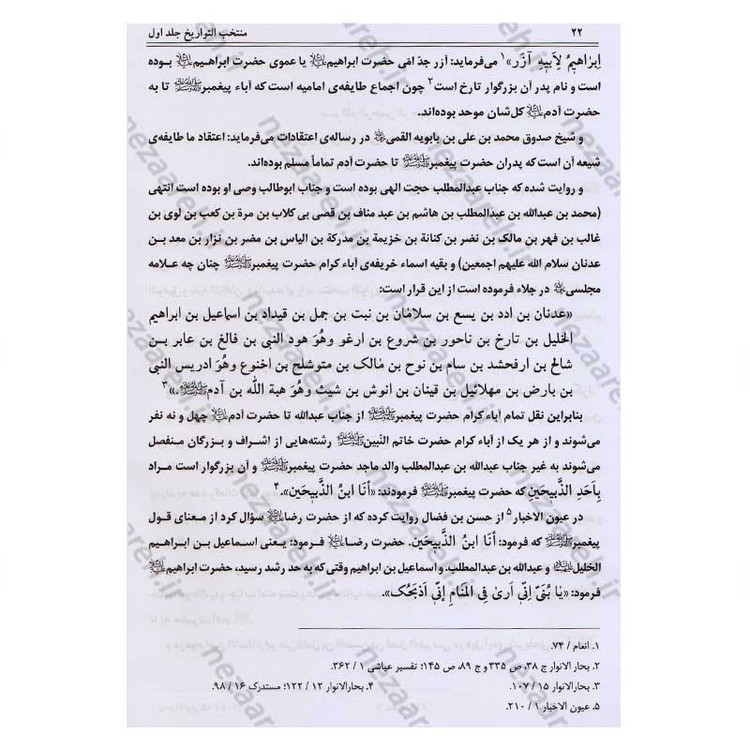 ۲۲
منتخب التواریخ جلد اول
اِبراهیمُ لِاَبیهِ آزَر»۱ می‌فرماید: آزر جدّ امّی حضرت ابراهیم یا عموی حضرت ابراهیم بوده
است و نام پدر آن بزرگوار تارخ است۲ چون اجماع طایفه‌ی امامیه است که آباء پیغمبر تا به
حضرت آدم کل‌شان موحد بوده‌اند.
و شیخ صدوق محمد بن علی بن بابویه القمی در رساله‌ی اعتقادات می‌فرماید: اعتقاد ما طایفه‌ی
شیعه آن است که پدران حضرت پیغمبر تا حضرت آدم تماماً مسلم بوده‌اند.
و روایت شده که جناب عبدالمطلب حجت الهی بوده است و جناب ابوطالب وصی او بوده است انتهی
(محمد بن عبدالله بن عبدالمطلب بن هاشم بن عبد مناف بن قصی بی کلاب بن مرة بن کعب بن لوی بن
غالب بن فهر بن مالک بن نضر بن کنانة بن خزیمة بن مدرکة بن الیاس بن مضر بن نزار بن معد بن
عدنان سلام الله علیهم اجمعین) و بقیه اسماء حُریفه‌ی آباء کرام حضرت پیغمبر چنان چه علامه
مجلسی در جلاء فرموده است از این قرار است:
«عدنان بن ادد بن یسع بن سلامان بن نبت بن جمل بن قیداد بن اسماعیل بن ابراهیم
الخلیل بن تارخ بن ناحور بن شروع بن ارغو وهُوَ هود النبی بن فالغ بن عابر بن
شالح بن ارفحشد بن سام بن نوح بن مٰالک بن متوشلح بن اخنوع وهُوَ ادریس النبی
بن یارض بن مهلائیل بن قینان بن انوش بن شیث وهُوَ هبة اللّٰه بن آدم.»۳
بنابراین نقل تمام آباء کرام حضرت پیغمبر از جناب عبدالله تا حضرت آدم چهل و نه نفر
می‌شوند و از هر یک از آباء کرام حضرت خاتم النّبین رشته‌هایی از اشراف و بزرگان منفصل
می‌شوند به غیر جناب عبدالله بن عبدالمطلب والد ماجد حضرت پیغمبر و آن بزرگوار است مراد
بِاَحَدِ الذَّبیحَینِ که حضرت پیغمبر فرمودند: «اَنَا ابنُ الذَّبیحَین».۴
در عیون الاخبار۵ از حسن بن فضال روایت کرده که از حضرت رضا سؤال کرد از معنای قول
پیغمبر که فرمود: اَنَا ابنُ الذَّبیحَین. حضرت رضا فرمود: یعنی اسماعیل بن ابراهیم
الخلیل و عبدالله بن عبدالمطلب. و اسماعیل بن ابراهیم وقتی که به حد رشد رسید، حضرت ابراهیم
فرمود: «یا بُنَیَّ اِنّی اَریٰ فِی المَنٰامِ اِنّی اَذبَحُک».
۱. انعام / ۷۴.
۲. بحار الانوار ج ۳۸، ص ۳۳۵ و ج ۸۹، ص ۱۴۵؛ تفسیر عیاشی ۱ / ۳۶۲.
۳. بحارالانوار ۱۵ / ۱۰۷.
۴. بحارالانوار ۱۲ / ۱۲۲؛ مستدرک ۱۶ / ۹۸.
۵. عیون الاخبار ۱ / ۲۱۰.
nezaareh.ir